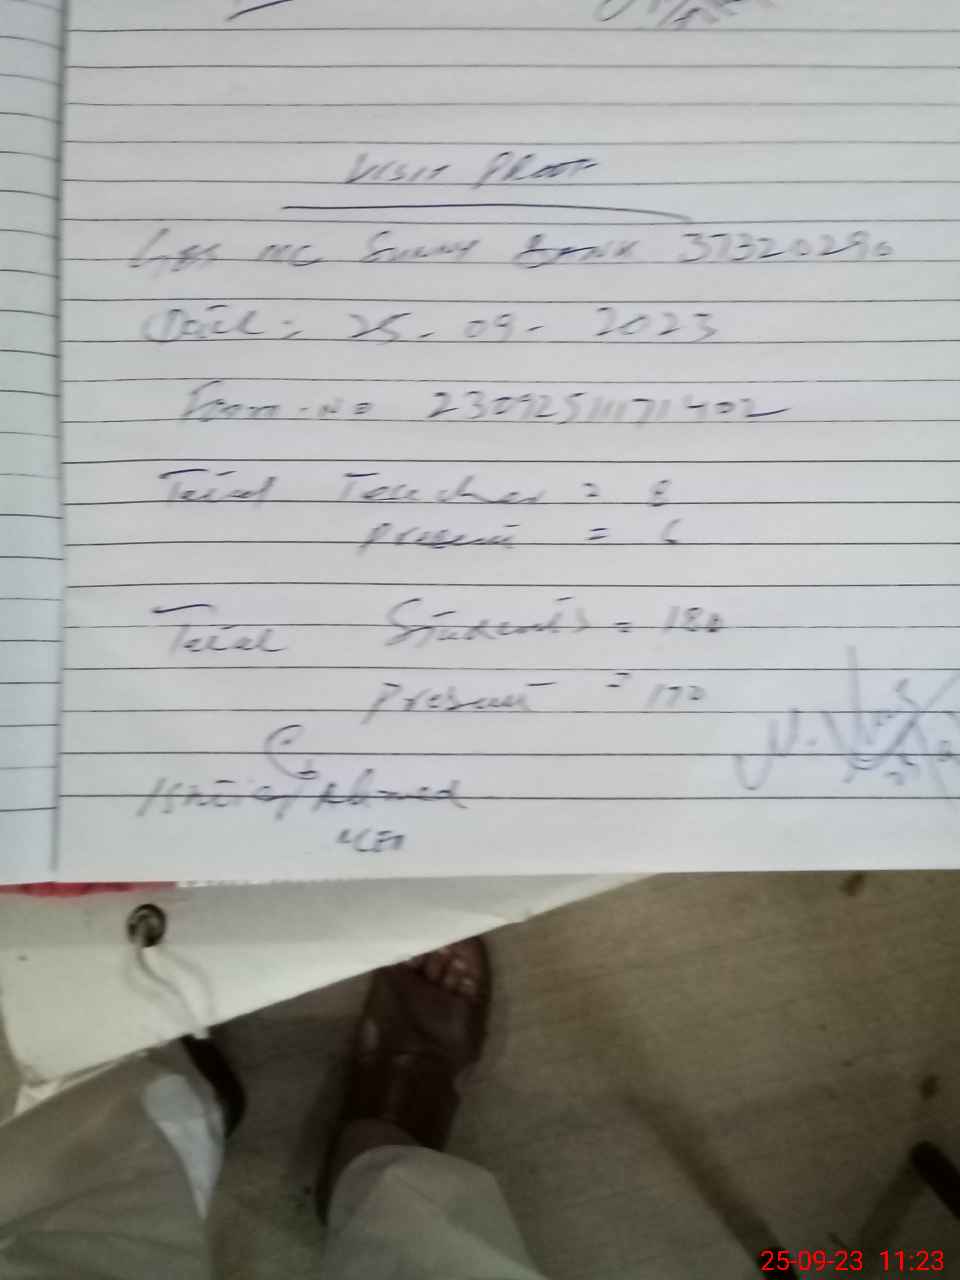 Visit Proof
GBS MC Sunny Bank 37320290
Date: 25-09-2023
Form-No 230925111171402
Total Teacher = 8
Present = 6
Total Students = 180
Present = 170
Ahmed
25-09-23 11:23